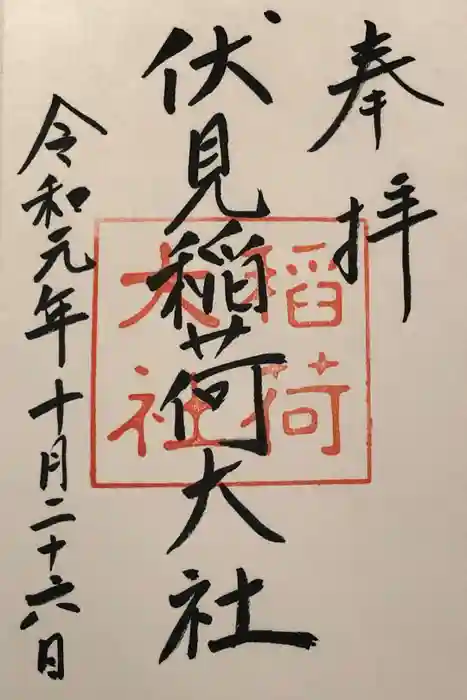 奉拝
伏見稲荷大社
稲荷
大社
令和元年十月二十六日